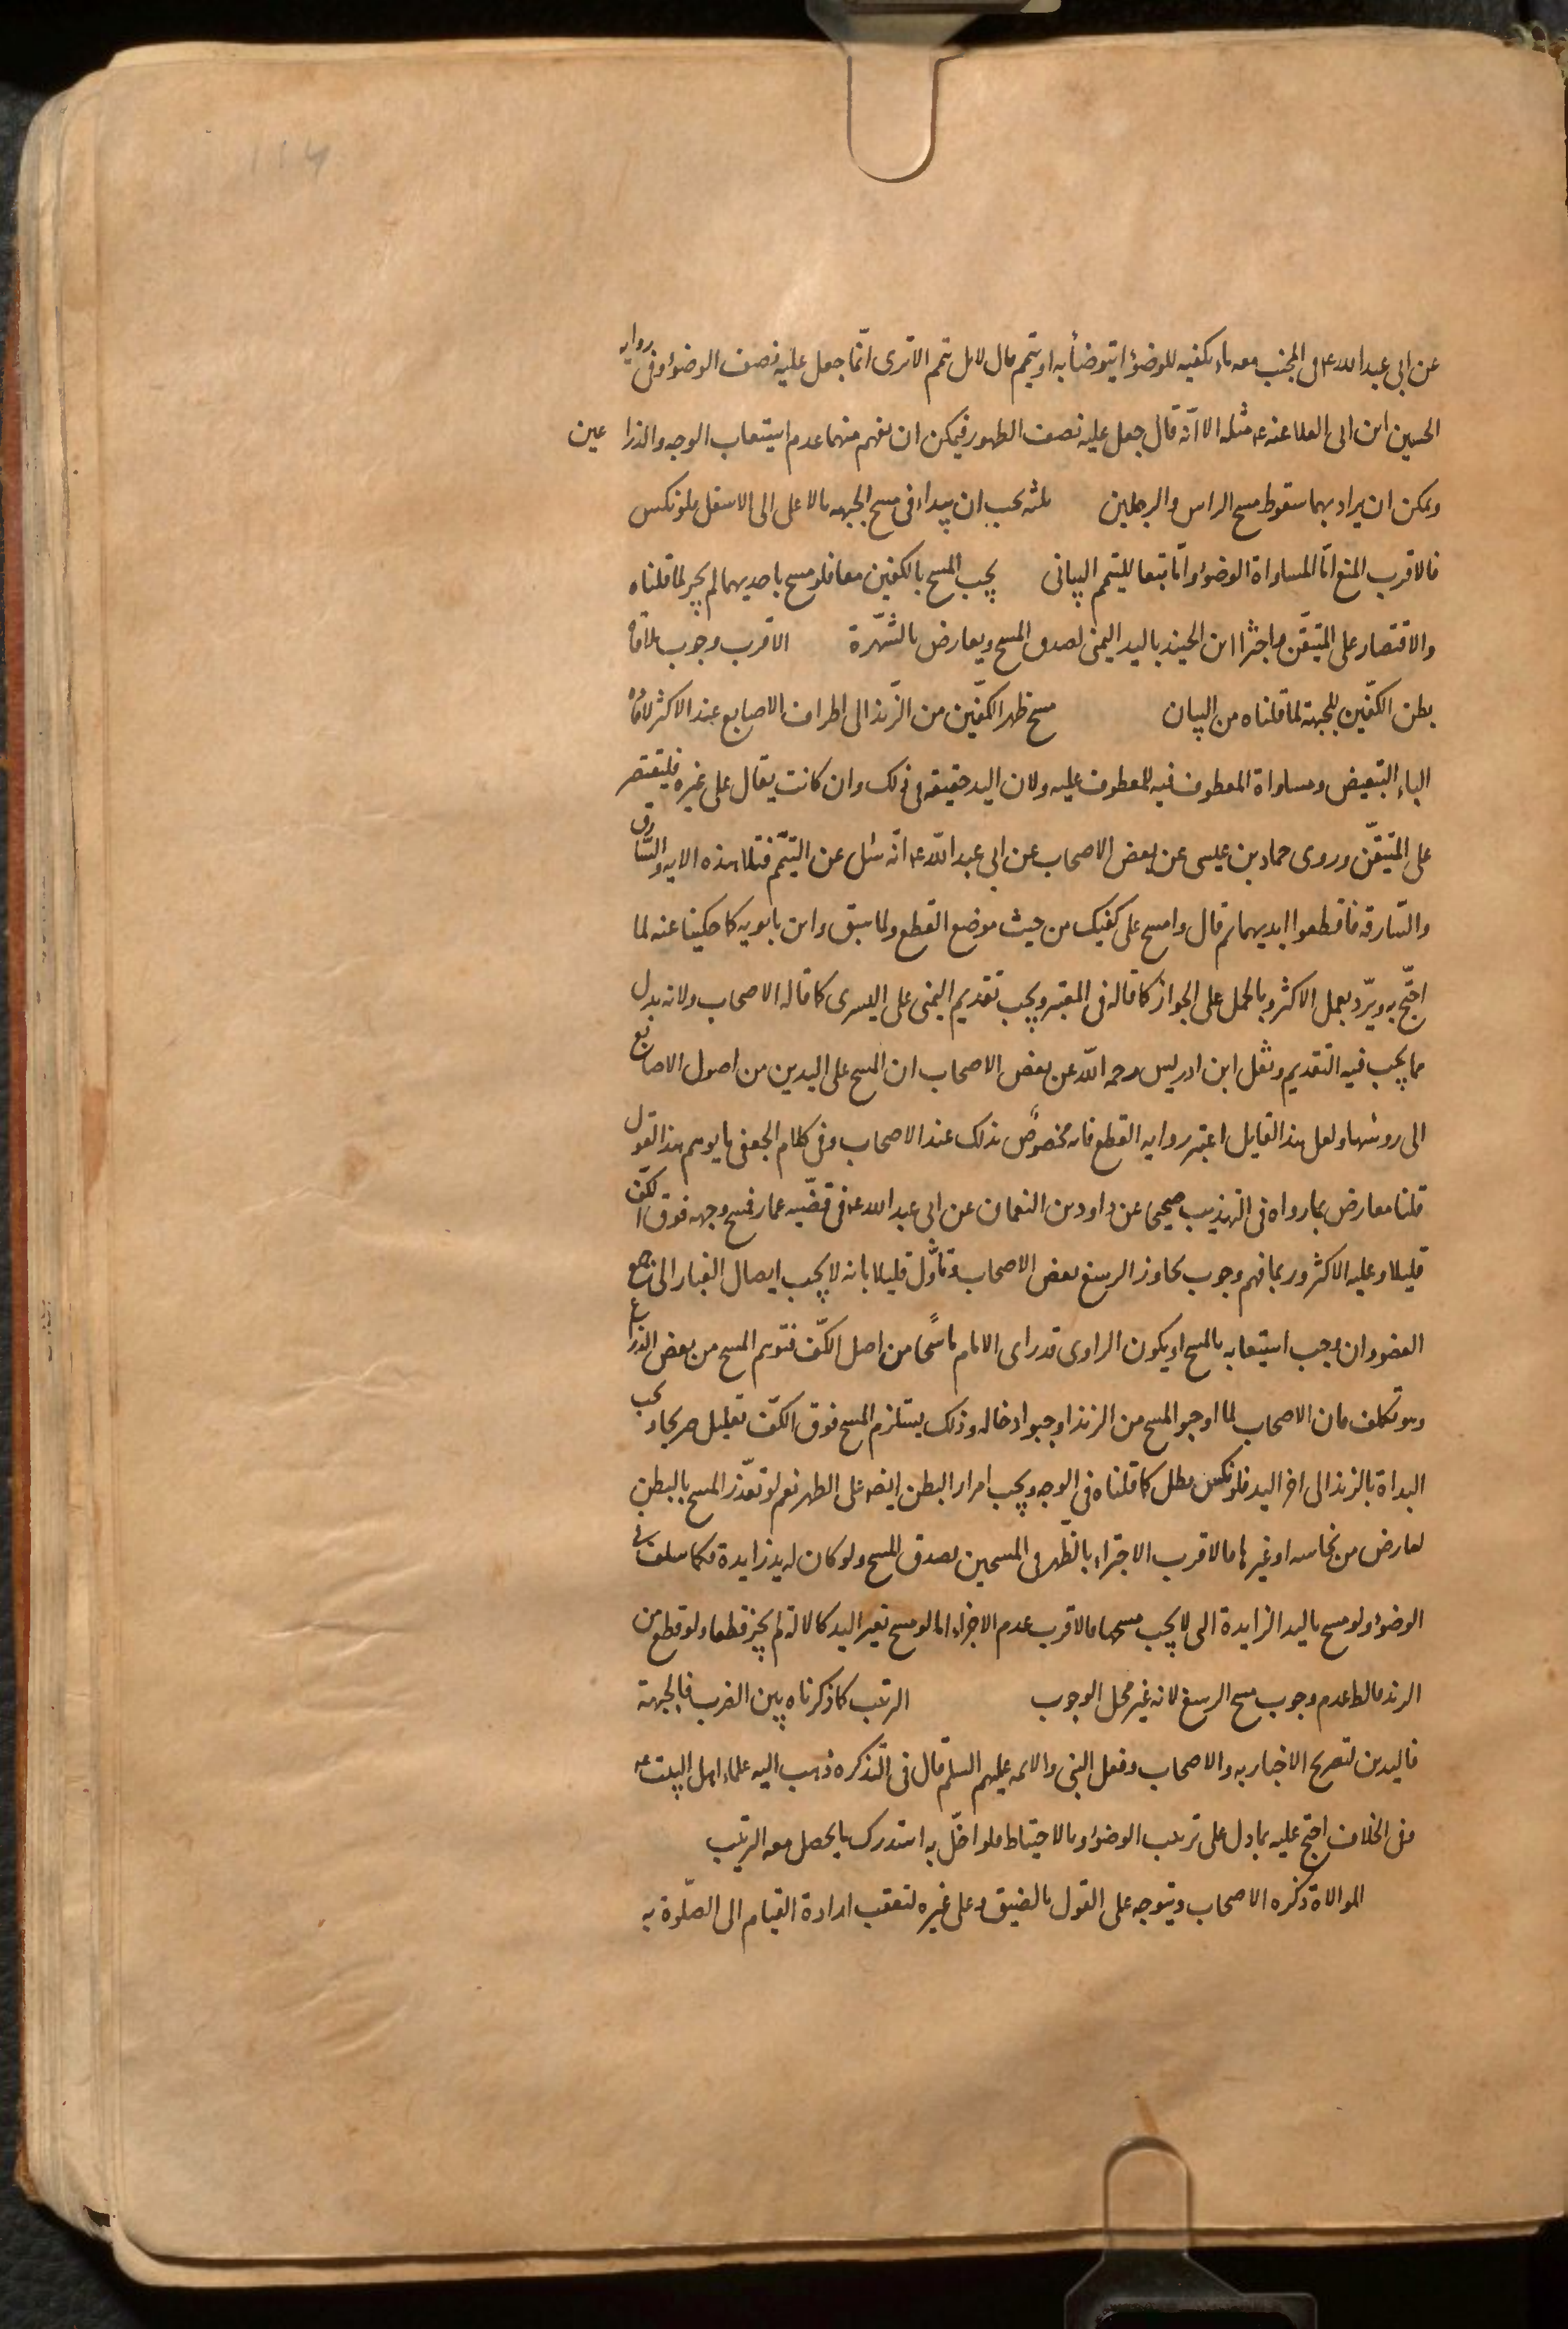 عن ابى عبد الله ع فى المجنب معه ماء يكفيه للوضوء ايتوضأ به او يتيمم قال لا بل يتيمم الا ترى انّما جعل عليه نصف الوضوء وفى رواية
الحسين ابن ابى العلا عنه ع مثله الا انّه قال جعل عليه نصف الطهور فيمكن ان يفهم منهما عدم استيعاب الوجه والذراعين
ويمكن ان يراد بهما سقوط مسح الراس والرجلين يجب ان يبداء فى مسح الجبهه بالاعلى الى الاسفل فلو نكس
فالاقرب المنع امّا لمساواة الوضوء وامّا تبعا للتيمم البيانى يجب المسح بالكفين معا فلو مسح باحديهما لم يجز لما قلناه
والاقتصار على المتيقّن واجتزا ابن الجنيد باليد اليمنى لصدق المسح ويعارض بالشّهرة الاقرب وجوب ملاقاة
بطن الكفّين للجبهة لما قلناه من البيان مسح ظهر الكفّين من الزّند الى اطراف الاصابع عند الاكثر لافادة
الباء التبعيض ومساواة المعطوف فيه للمعطوف عليه ولان اليد حقيقه فى ذلك وان كانت يقال على غيره فليقتصر
على المتيقّن وروى حماد بن عيسى عن بعض الاصحاب عن ابى عبد الله ع انّه سئل عن التيمّم فتلا هذه الايه والسّارق
والسّارقه فاقطعوا ايديهما ثم قال وامسح على كفيك من حيث موضع القطع ولما سبق وابن بابويه كما حكينا عنه لما
احتجّ به ويردّ بعمل الاكثر وبالحمل على الجواز كما قاله فى المعتبر ويجب تقديم اليمنى على اليسرى كما قاله الاصحاب ولانه بدل
مما يجب فيه التقديم ونقل ابن ادريس رحمه الله عن بعض الاصحاب ان المسح على اليدين من اصول الاصابع
الى روسها ولعل هذا القايل اعتبر روايه القطع فانه مخصوصٌ بذلك عند الاصحاب وفى كلام الجعفى ما يوهم هذا القول
قلنا معارض بما رواه فى التهذيب صحيحا عن داود بن النعمان عن ابى عبد الله ع فى قضيّه عمار فمسح وجهه فوق الكفّ
قليلا وعليه الاكثر وربما فهم وجوب تجاوز الرسغ بعض الاصحاب وتاوّل قليلا بانه لا يجب ايصال الغبار الى جميع
العضو وان وجب استيعابه بالمسح او يكون الراوى قد راى الامام ماسحًا من اصل الكفّ فتوهم المسح من بعض الذراع
وهو تكلف فان الاصحاب لما اوجبوا المسح من الزند اوجبوا ادخاله وذلك يستلزم المسح فوق الكفّ بقليل ويجب
البداة بالزند الى اخر اليد فلو نكس بطل كما قلناه فى الوجه ويجب امرار البطن ايضه على الظهر نعم لو تعذّر المسح بالبطن
لعارض من نجاسه او غيرها فالاقرب الاجتزاء بالظّهر فى المسحين لصدق المسح ولو كان له يد زايدة فكما سلف فى
الوضوء ولو مسح باليد الزايدة التى لا يجب مسحها فالاقرب عدم الاجزاء اما لو مسح بغير اليد كالاله لم يجز قطعا ولو قطع من
الزند فالظ عدم وجوب مسح الرسغ لانه غير محل الوجوب الترتيب كما ذكرناه بين الضرب فالجبهة
فاليدين لتصريح الاخبار به والاصحاب وفعل النبى والائمه عليهم السلم قال فى التّذكره ذهب اليه علماء اهل البيت ع
وفى الخلاف احتج عليه بما دل على ترتيب الوضوء وبالاحتياط فلو اخلّ به استدرك ما يحصل معه الترتيب
الموالاة ذكره الاصحاب ويتوجه على القول بالضيق وعلى غيره لتعقب ارادة القيام الى الصّلوة به